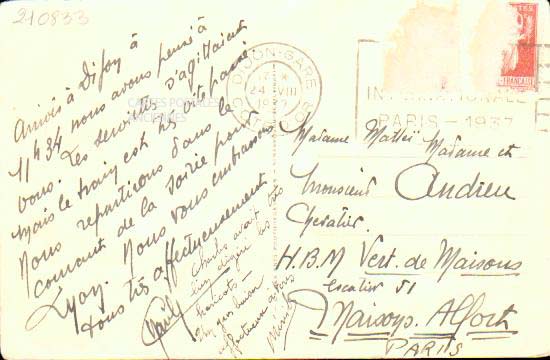 210833
Arrivés à Dijon à
11h34 nous avons pensé à
vous. Les serviettes s'agitaient
mais le train est très vite passé
Nous repartirons dans le
courant de la soirée pour
Lyon. Nous vous embrassons
tous très affectueusement
Charles avait
bien
haricots
CARTES POSTALES
ANCIENNES
DIJON-GARE
24 VIII
1937
CÔTE D'OR
INTERNATIONALE
PARIS - 1937
Madame Mattei Madame et
Monsieur Andrieu
Chevalier
H.B.M Vert. de Maisons
Escalier 51
Maisons. Alfort
PARIS